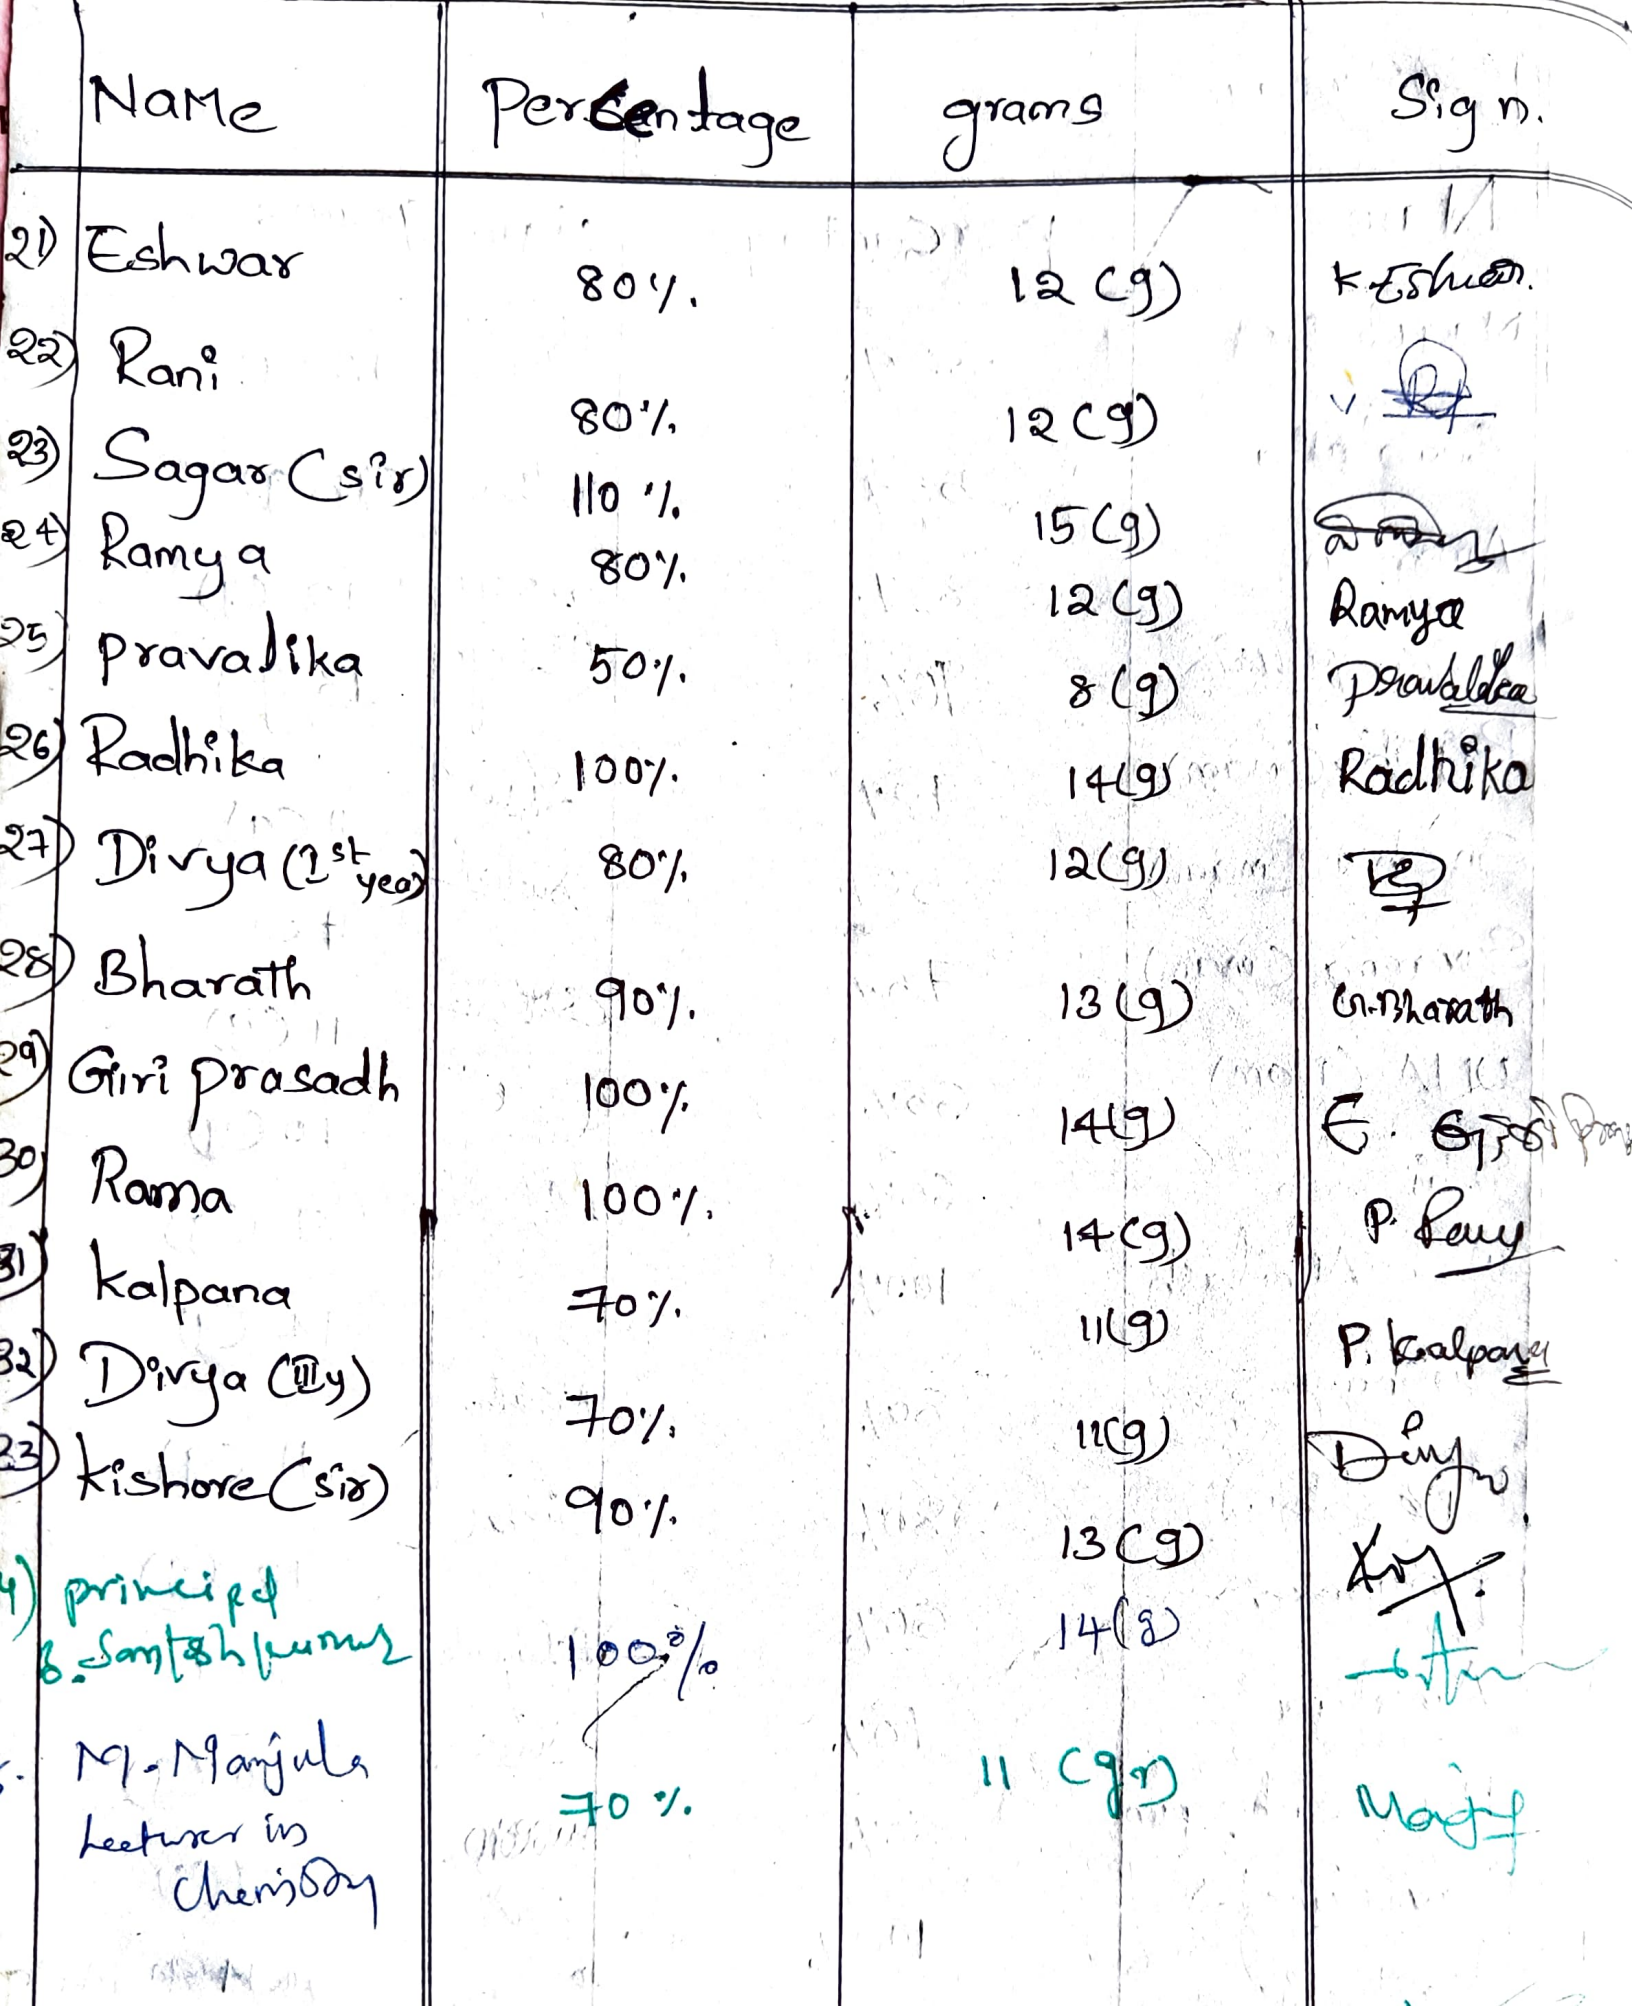 Name Percentage grams Sign.
21) Eshwar 80%. 12 (g) K. Eshwar.
22) Rani 80%. 12 (g)
23) Sagar (sir) 110 %. 15 (g)
24) Ramya 80%. 12 (g) Ramya
25) pravalika 50%. 8 (g) Pravalika
26) Radhika 100%. 14(g) Radhika
27) Divya (1st year) 80%. 12(g)
28) Bharath 90%. 13 (g) G.Bharath
29) Giri prasadh 100%. 14(g) E.
30) Rama 100%. 14 (g) P.
31) kalpana 70%. 11(g) P. kalpana
32) Divya (III y) 70%. 11(g) Divya
33) kishore (sir) 90%. 13 (g)
4) principal
B. Santosh kumar 100% 14(g)
M. Manjula 70 %. 11 (gr) Manju
Lecturer in
Chemistry